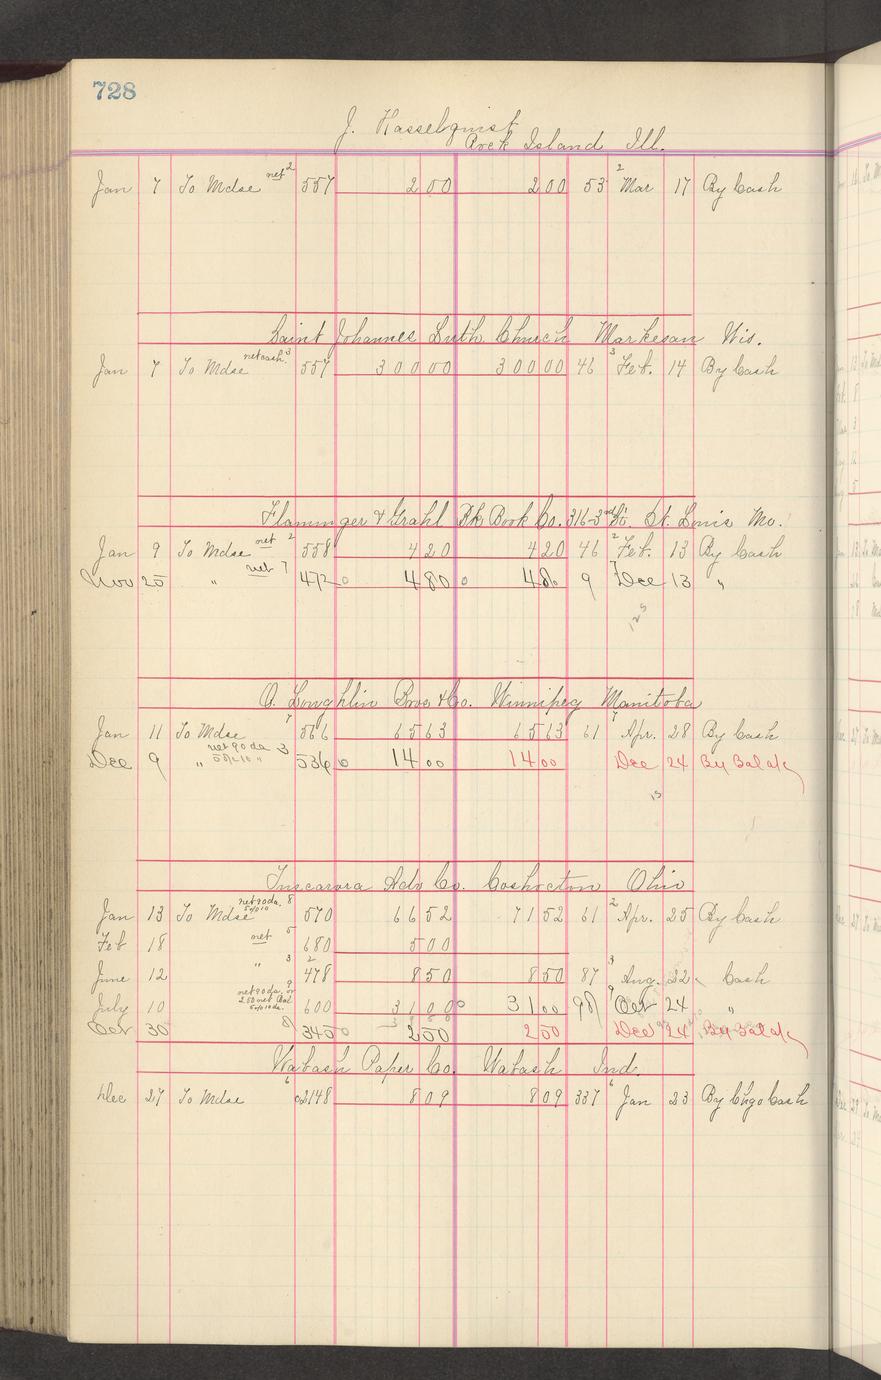 728
J. Hasselquist
Rock Island Ill.
Jan 7 To Mdse net 2 557 2 00 2 00 53 2 Mar 17 By Cash
Saint Johannes Luth. Church Markesan Wis.
Jan 7 To Mdse net cash 3 557 300 00 300 00 46 3 Feb. 14 By Cash
Flamminger & Grahl Bk Book Co. 316-3rd St. St. Louis Mo.
Jan 9 To Mdse net 2 558 4 20 4 20 46 2 Feb. 13 By Cash
Nov 25 " net 7 472 0 4 80 0 4 80 9 7 Dec 13 "
O. Loughlin Bros & Co. Winnipeg Manitoba
Jan 11 To Mdse 7 566 65 63 65 63 61 7 Apr. 28 By Cash
Dec 9 " net 90 da 3 5% 10 " 536 0 14 00 14 00 Dec 24 By Bal
15
Tuscarora Adv Co. Coshocton Ohio
Jan 13 To Mdse net 90 da. 8 5% 10 570 66 52 71 52 61 2 Apr. 25 By Cash
Feb 18 net 5 680 5 00
June 12 " 3 2 478 8 50 8 50 87 3 Aug. 22 Cash
July 10 net 90 da. or 9 2.50 net Bal 5% 10 da. 600 31 00 0 31 00 98 9 Oct 24 "
Oct 30 8 345 0 2 50 2 50 Dec 24 By Bal
Wabash Paper Co. Wabash Ind.
Dec 27 To Mdse 6 2148 8 09 8 09 337 6 Jan 23 By Chgo Cash